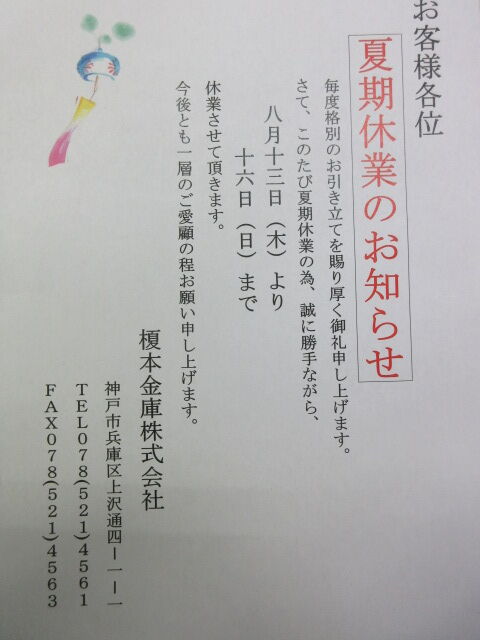 お客様各位
夏期休業のお知らせ
毎度格別のお引き立てを賜り厚く御礼申し上げます。
さて、このたび夏期休業の為、誠に勝手ながら、
八月十三日（木）より
十六日（日）まで
休業させて頂きます。
今後とも一層のご愛顧の程お願い申し上げます。
榎本金庫株式会社
神戸市兵庫区上沢通四ー一ー一
ＴＥＬ０７８(５２１)４５６１
ＦＡＸ０７８(５２１)４５６３